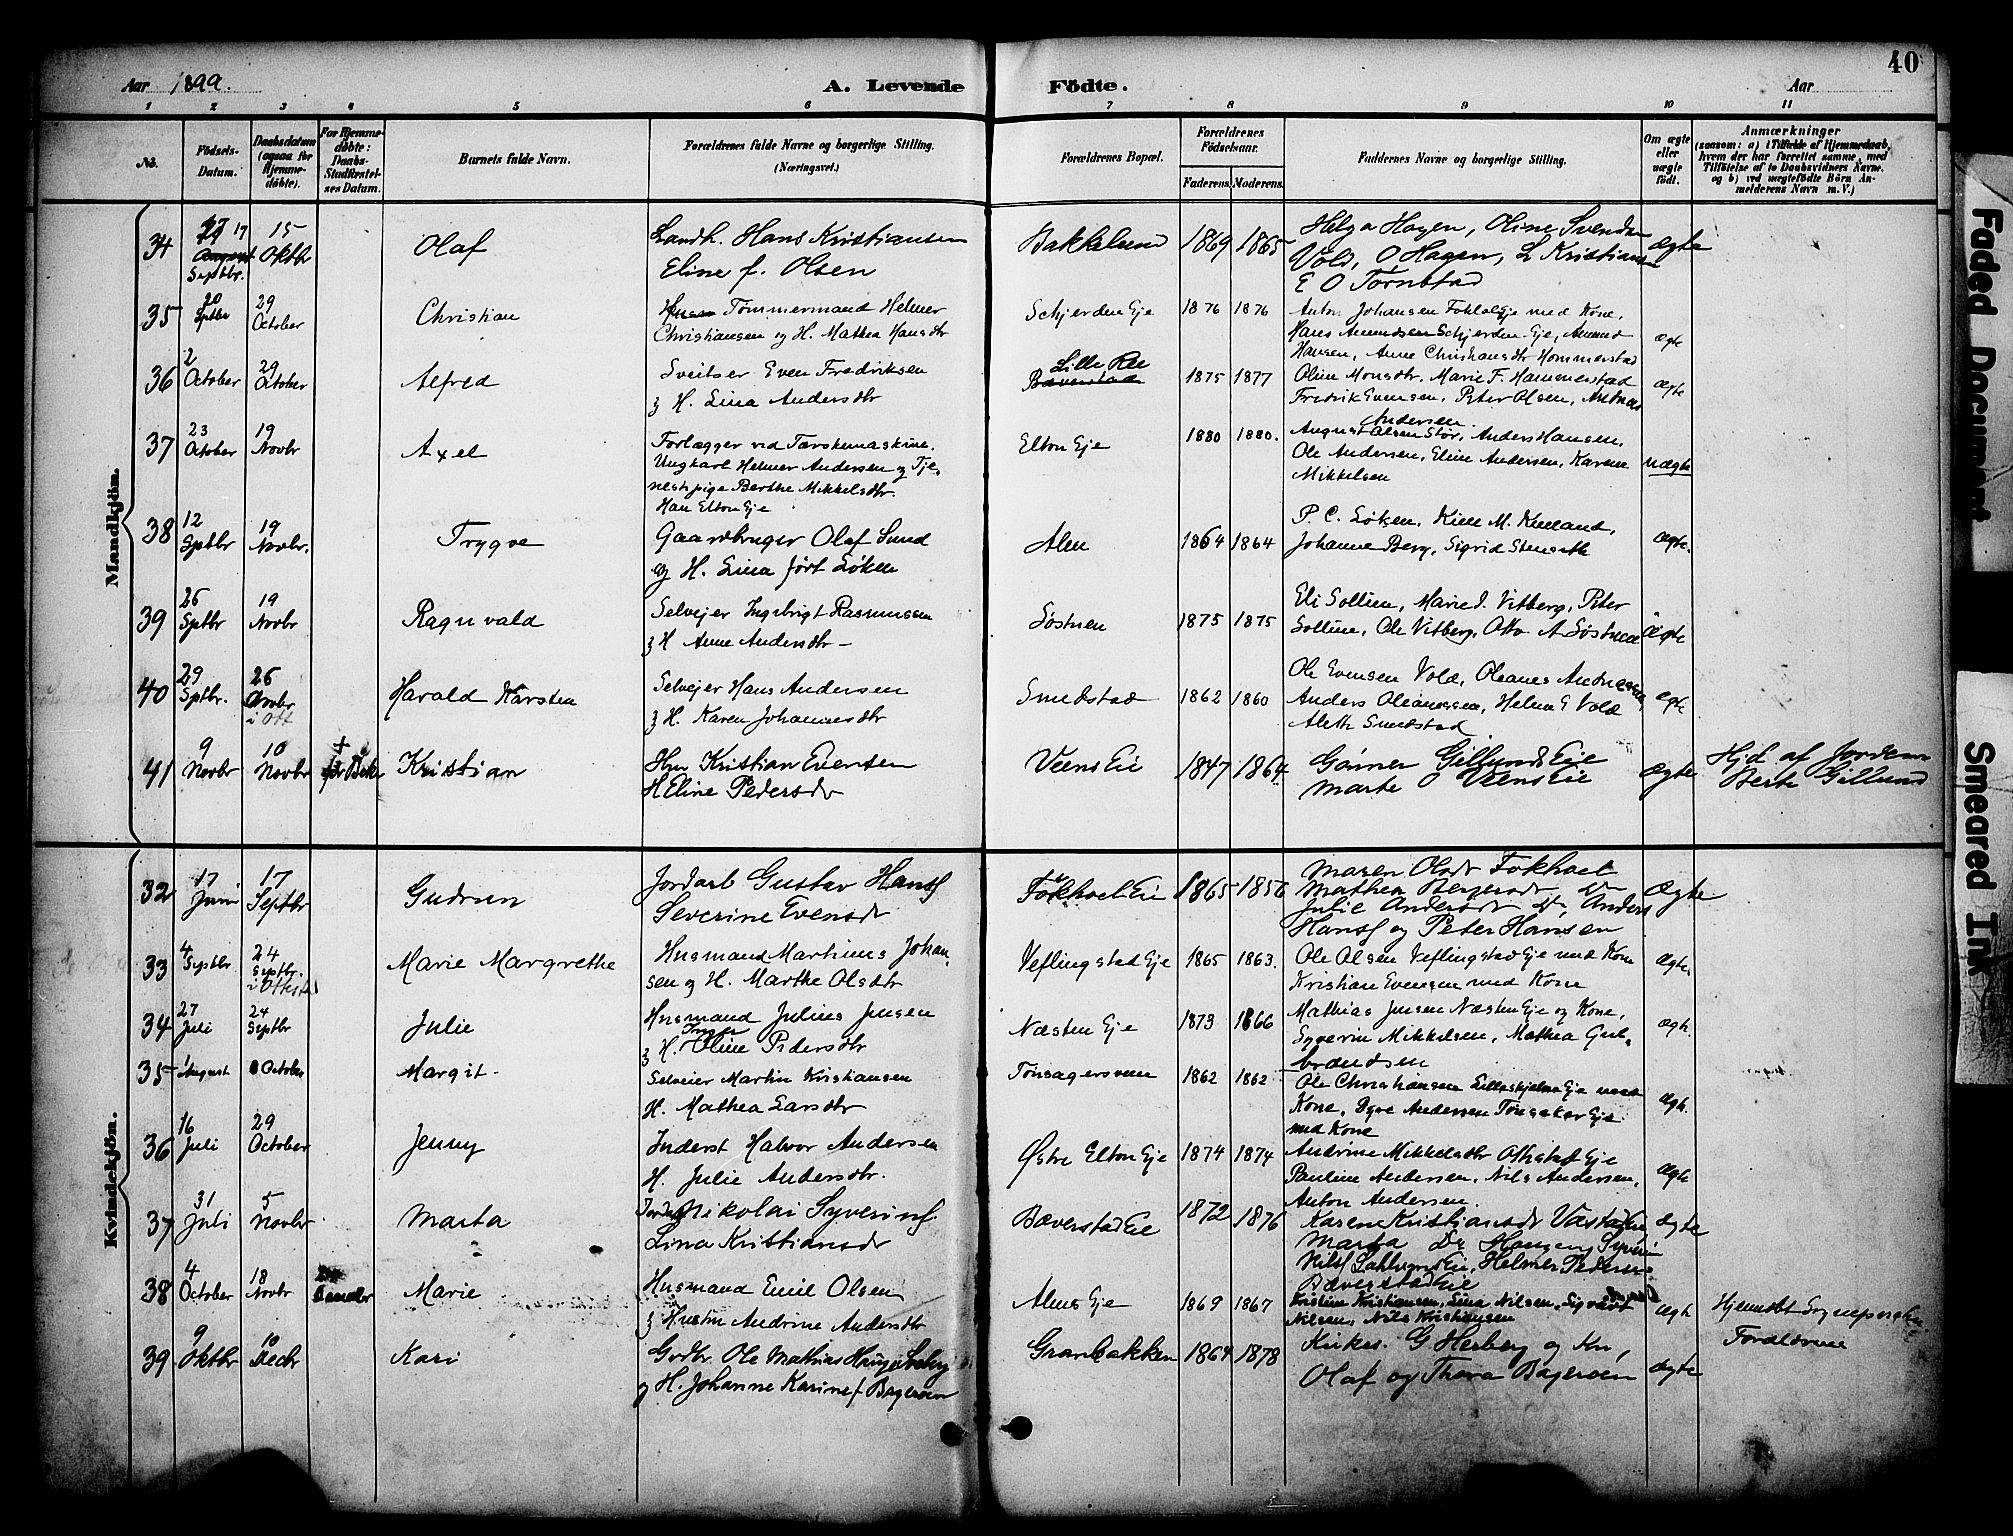 40
Aar 1899.
A. Levende Födte.
Aar
1 2 3 4 5 6 7 8 9 10 11
No.
Födsels-Datum.
Daabsdatum (ogsaa for Hjemme-döbte).
For Hjemme-döbte: Daabs-Stadfæstel-ses Datum.
Barnets fulde Navn.
Forældrenes fulde Navne og borgerlige Stilling. (Næringsvei.)
Forældrenes Bopæl.
Forældrenes Födselsaar.
Faderens. Moderens.
Faddernes Navne og borgerlige Stilling.
Om ægte eller uægte födt.
Anmærkninger
(saasom: a) i Tilfælde af Hjemmedaab, hvem der har forrettet samme, med Tilföielse af to Daabsvidners Navne. og b) ved uægtefödte Börn An-melderens Navn m. V.)
Mandkjön.
34 17 Septbr. 15 Oktbr Olaf
Landh. Hans Kristiansen
Eline f. Olsen
Bakkelund 1869 1865
Helga Hagen, Oline Svendsen
Vold, O Hagen, L Kristiansen
E O Tørnstad
ægte
35 20 Sptbr 29 October Christian
Tømmermand Helmer
Christiansen og H. Mathea Hansdtr
Schjerden Eje 1876 1876
Anton Johansen Fokhol Eje med Kone,
Hans Amundsen Schjerden Eje, Amund
Hansen, Anne Christiansdtr Hommerstad
ægte
36 2 October 29 October Alfred
Sveitser Even Fredriksen
og H. Lina Andersdtr
Lille Ree
Bæverstad 1875 1877
Oline Monsdtr, Marie F. Hammerstad
Fredrik Evensen, Peter Olsen, Andreas
Andersen.
ægte
37 23 October 19 Novbr Axel
Forlægger ved Tærskemaskine.
Ungkarl Helmer Andersen og Tje-
nestepige Berthe Mikkelsdtr.
Han Elton Eje
Elton Eje 1880 1880.
August Olsen Stor, Anders Hansen,
Ole Andersen, Eline Andersen, Karene
Mikkelsen
uægte
38 12 Sptbr 19 Novbr. Trygve
Gaardbruger Olaf Sund
og H. Lina født Løken
Alm 1864 1864
P. C. Løken, Kielland,
Johanne Berg, Sigrid
ægte.
39 26 Sptbr 19 Novbr Ragnvald
Selvejer Ingebrigt Rasmussen
og H Anne Andersdtr
Søstuen 1875 1875
Eli Sollien, Marie J. Vitberg, Peter
Sollien, Ole Vitberg, Otto A Søstuen
ægte
40 29 Sptbr. 26 Novbr i Ott Harald Karsten
Selvejer Hans Andersen
og H. Karen Johannesdtr
Smedstad 1862 1860
Ole Evensen Vold, Oleanes Andreassen,
Anders Oleanessen, Helene E Vold
Aleth Smedstad
ægte
41 9 Novbr 10 Novbr Kristian
Hm Kristian Evensen
H Eline Pedersdr
Veens Eie 1847 1864
Gillund Eie
Marte O Veens Eie
ægte
Hjd af Jordem
Berte Gillund
Kvindekjön.
32 17 Juni 17 Septbr Gudrun
Jordarb Gustav Hans
Severine Evensdr
Fokhoel Eie 1865 1856
Maren Olsdr Fokhoel
Mathea Bergersdr Do
Julie Andersdr Do, Anders
Hans og Peter Hansen
ægte
33 4 Septbr 24 Septbr. i Ottestad Marie Margrethe
Husmand Martinus Johan-
sen og H. Marthe Olsdtr
Veflingstad Eje 1865 1863.
Ole Olsen Veflingstad Eje med Kone
Kristian Evensen med Kone
ægte.
34 27 Juli 24 Septbr Julie
Husmand Julius Jensen
og H. Oline Pedersdtr
Næsten Eje 1873 1866
Mathias Jensen Næsten Eje og Kone,
Syverin Mikkelsen, Mathea Gul-
brandsen
ægte.
35 1 August 8 October Margit.
Selveier Martin Kristiansen
H. Mathea Larsdtr
Tonsagersveen 1862 1862
Ole Christiansen Lilleskjelve Eje med
Kone, Dyre Andersen Tonsaker Eje
med Kone
ægte.
36 16 Juli 29 October Jenny
Inderst Halvor Andersen
H. Julie Andersdtr.
Østre Elton Eje 1874 1874
Andrine Mikkelsdtr Ottestad Eje
Pauline Andersen, Nils Andersen,
Anton Andersen
ægte
37 31 Juli 5 Novbr Marta
Nikolai Syverins
Lina Kristiansdr
Bæverstad Eie 1872 1876
Karen Kristiansdr
Marta Do Haugen, Syverin
Nils Eie, Helmer Pedersen
Bæverstad Eie
ægte
38 4 October 18 Novbr Marie
Husmand Emil Olsen
og Hustru Andrine Andersdtr
Alms Eje 1869 1867
Kristine Kristiansen, Lina Nilsen, Syvert
Nilsen, Nils Kristiansen
ægte
Hjemdøbt
Forældrene
39 9 Oktbr 10 Decbr Kari
Grdbr. Ole Mathias
og H. Johanne Karine f. Bagerøen
Granbakken 1864 1878
Kirkes. G Herberg og Kn,
Olaf og Thora Bagerøen
ægte
Faded Document
Smeared Ink